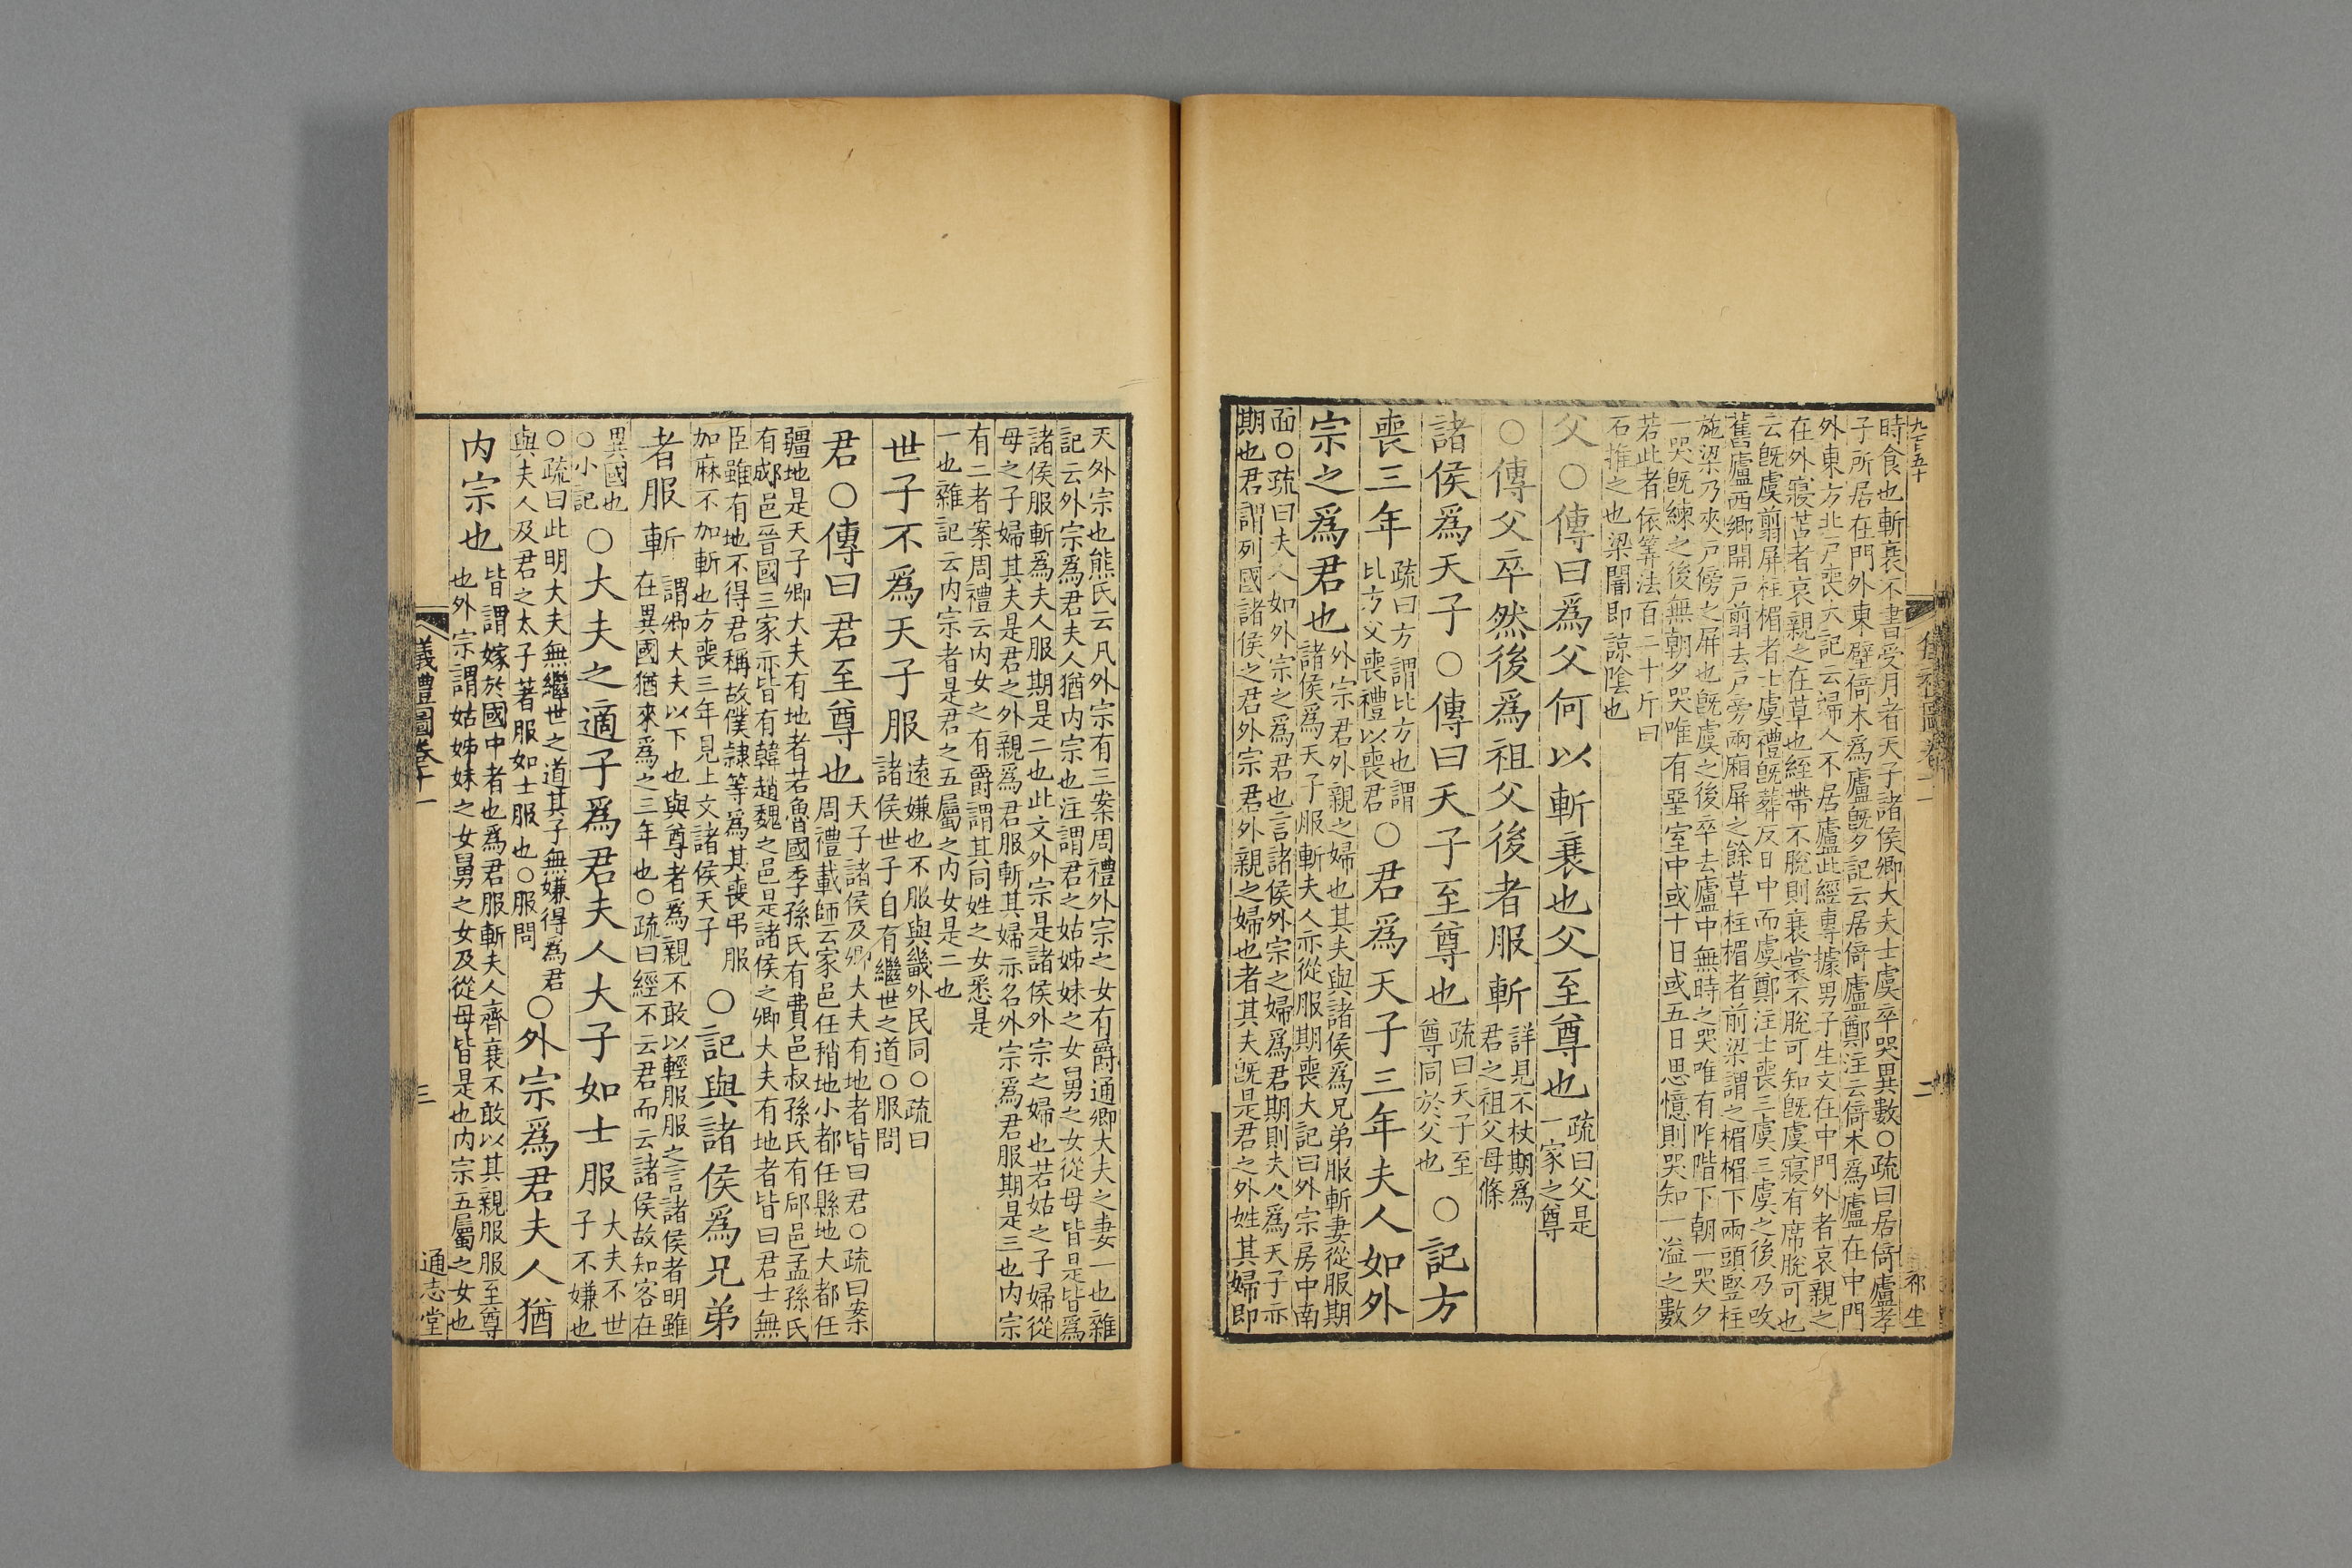 九百五十
儀禮圖卷十一
二
祁生
時食也斬衰不書受月者天子諸侯卿大夫士虞卒哭異數○疏曰居倚廬孝
子所居在門外東壁倚木爲廬旣夕記云居倚廬鄭注云倚木爲廬在中門
外東方北戶喪大記云婦人不居廬此經專據男子生文在中門外者哀親之
在外寢苫者哀親之在草也絰帶不脫則衰裳不脫可知旣虞寢有席脫可也
云旣虞翦屏柱楣者士虞禮旣葬反日中而虞鄭注士喪三虞三虞之後乃改
舊廬西鄉開戶翦去戶旁兩廂屏之餘草柱楣者前梁謂之楣楣下兩頭竪柱
施梁乃夾戶傍之屏也旣虞之後卒去廬中無時之哭唯有阼階下朝一哭夕
一哭旣練之後無朝夕哭唯有堊室中或十日或五日思憶則哭知一溢之數
若此者依筭法百二十斤曰
石推之也梁闇即諒陰也
父○傳曰爲父何以斬衰也父至尊也疏曰父是
一家之尊
○傳父卒然後爲祖父後者服斬詳見不杖期爲
君之祖父母條
諸侯爲天子○傳曰天子至尊也疏曰天子至
尊同於父也○記方
喪三年疏曰方謂比方也謂
比方父喪禮以喪君○君爲天子三年夫人如外
宗之爲君也外宗君外親之婦也其夫與諸侯爲兄弟服斬妻從服期
諸侯爲天子服斬夫人亦從服期喪大記曰外宗房中南
面○疏曰夫人如外宗之爲君也言諸侯外宗之婦爲君期則夫人爲天子亦
期也君謂列國諸侯之君外宗君外親之婦也者其夫旣是君之外姓其婦即
天外宗也熊氏云凡外宗有三案周禮外宗之女有爵通卿大夫之妻一也雜
記云外宗爲君夫人猶内宗也注謂君之姑姊妹之女舅之女從母皆是皆爲
諸侯服斬爲夫人服期是二也此文外宗是諸侯外宗之婦也若姑之子婦從
母之子婦其夫是君之外親爲君服斬其婦亦名外宗爲君服期是三也内宗
有二者案周禮云内女之有爵謂其同姓之女悉是
一也雜記云内宗者是君之五屬之内女是二也
世子不爲天子服遠嫌也不服與畿外民同○疏曰
諸侯世子自有繼世之道○服問
君○傳曰君至尊也天子諸侯及卿大夫有地者皆曰君○疏曰案
周禮載師云家邑任稍地小都任縣地大都任
疆地是天子卿大夫有地者若魯國季孫氏有費邑叔孫氏有郈邑孟孫氏
有郕邑晉國三家亦皆有韓趙魏之邑是諸侯之卿大夫有地者皆曰君士無
臣雖有地不得君稱故僕隷等爲其喪弔服
加麻不加斬也方喪三年見上文諸侯天子○記與諸侯爲兄弟
者服斬謂卿大夫以下也與尊者爲親不敢以輕服服之言諸侯者明雖
在異國猶來爲之三年也○疏曰經不云君而云諸侯故知客在
異國也
○小記○大夫之適子爲君夫人大子如士服大夫不世
子不嫌也
○疏曰此明大夫無繼世之道其子無嫌得爲君
與夫人及君之太子著服如士服也○服問○外宗爲君夫人猶
内宗也皆謂嫁於國中者也爲君服斬夫人齊衰不敢以其親服服至尊
也外宗謂姑姊妹之女舅之女及從母皆是也内宗五屬之女也
儀禮圖卷十一
三
通志堂